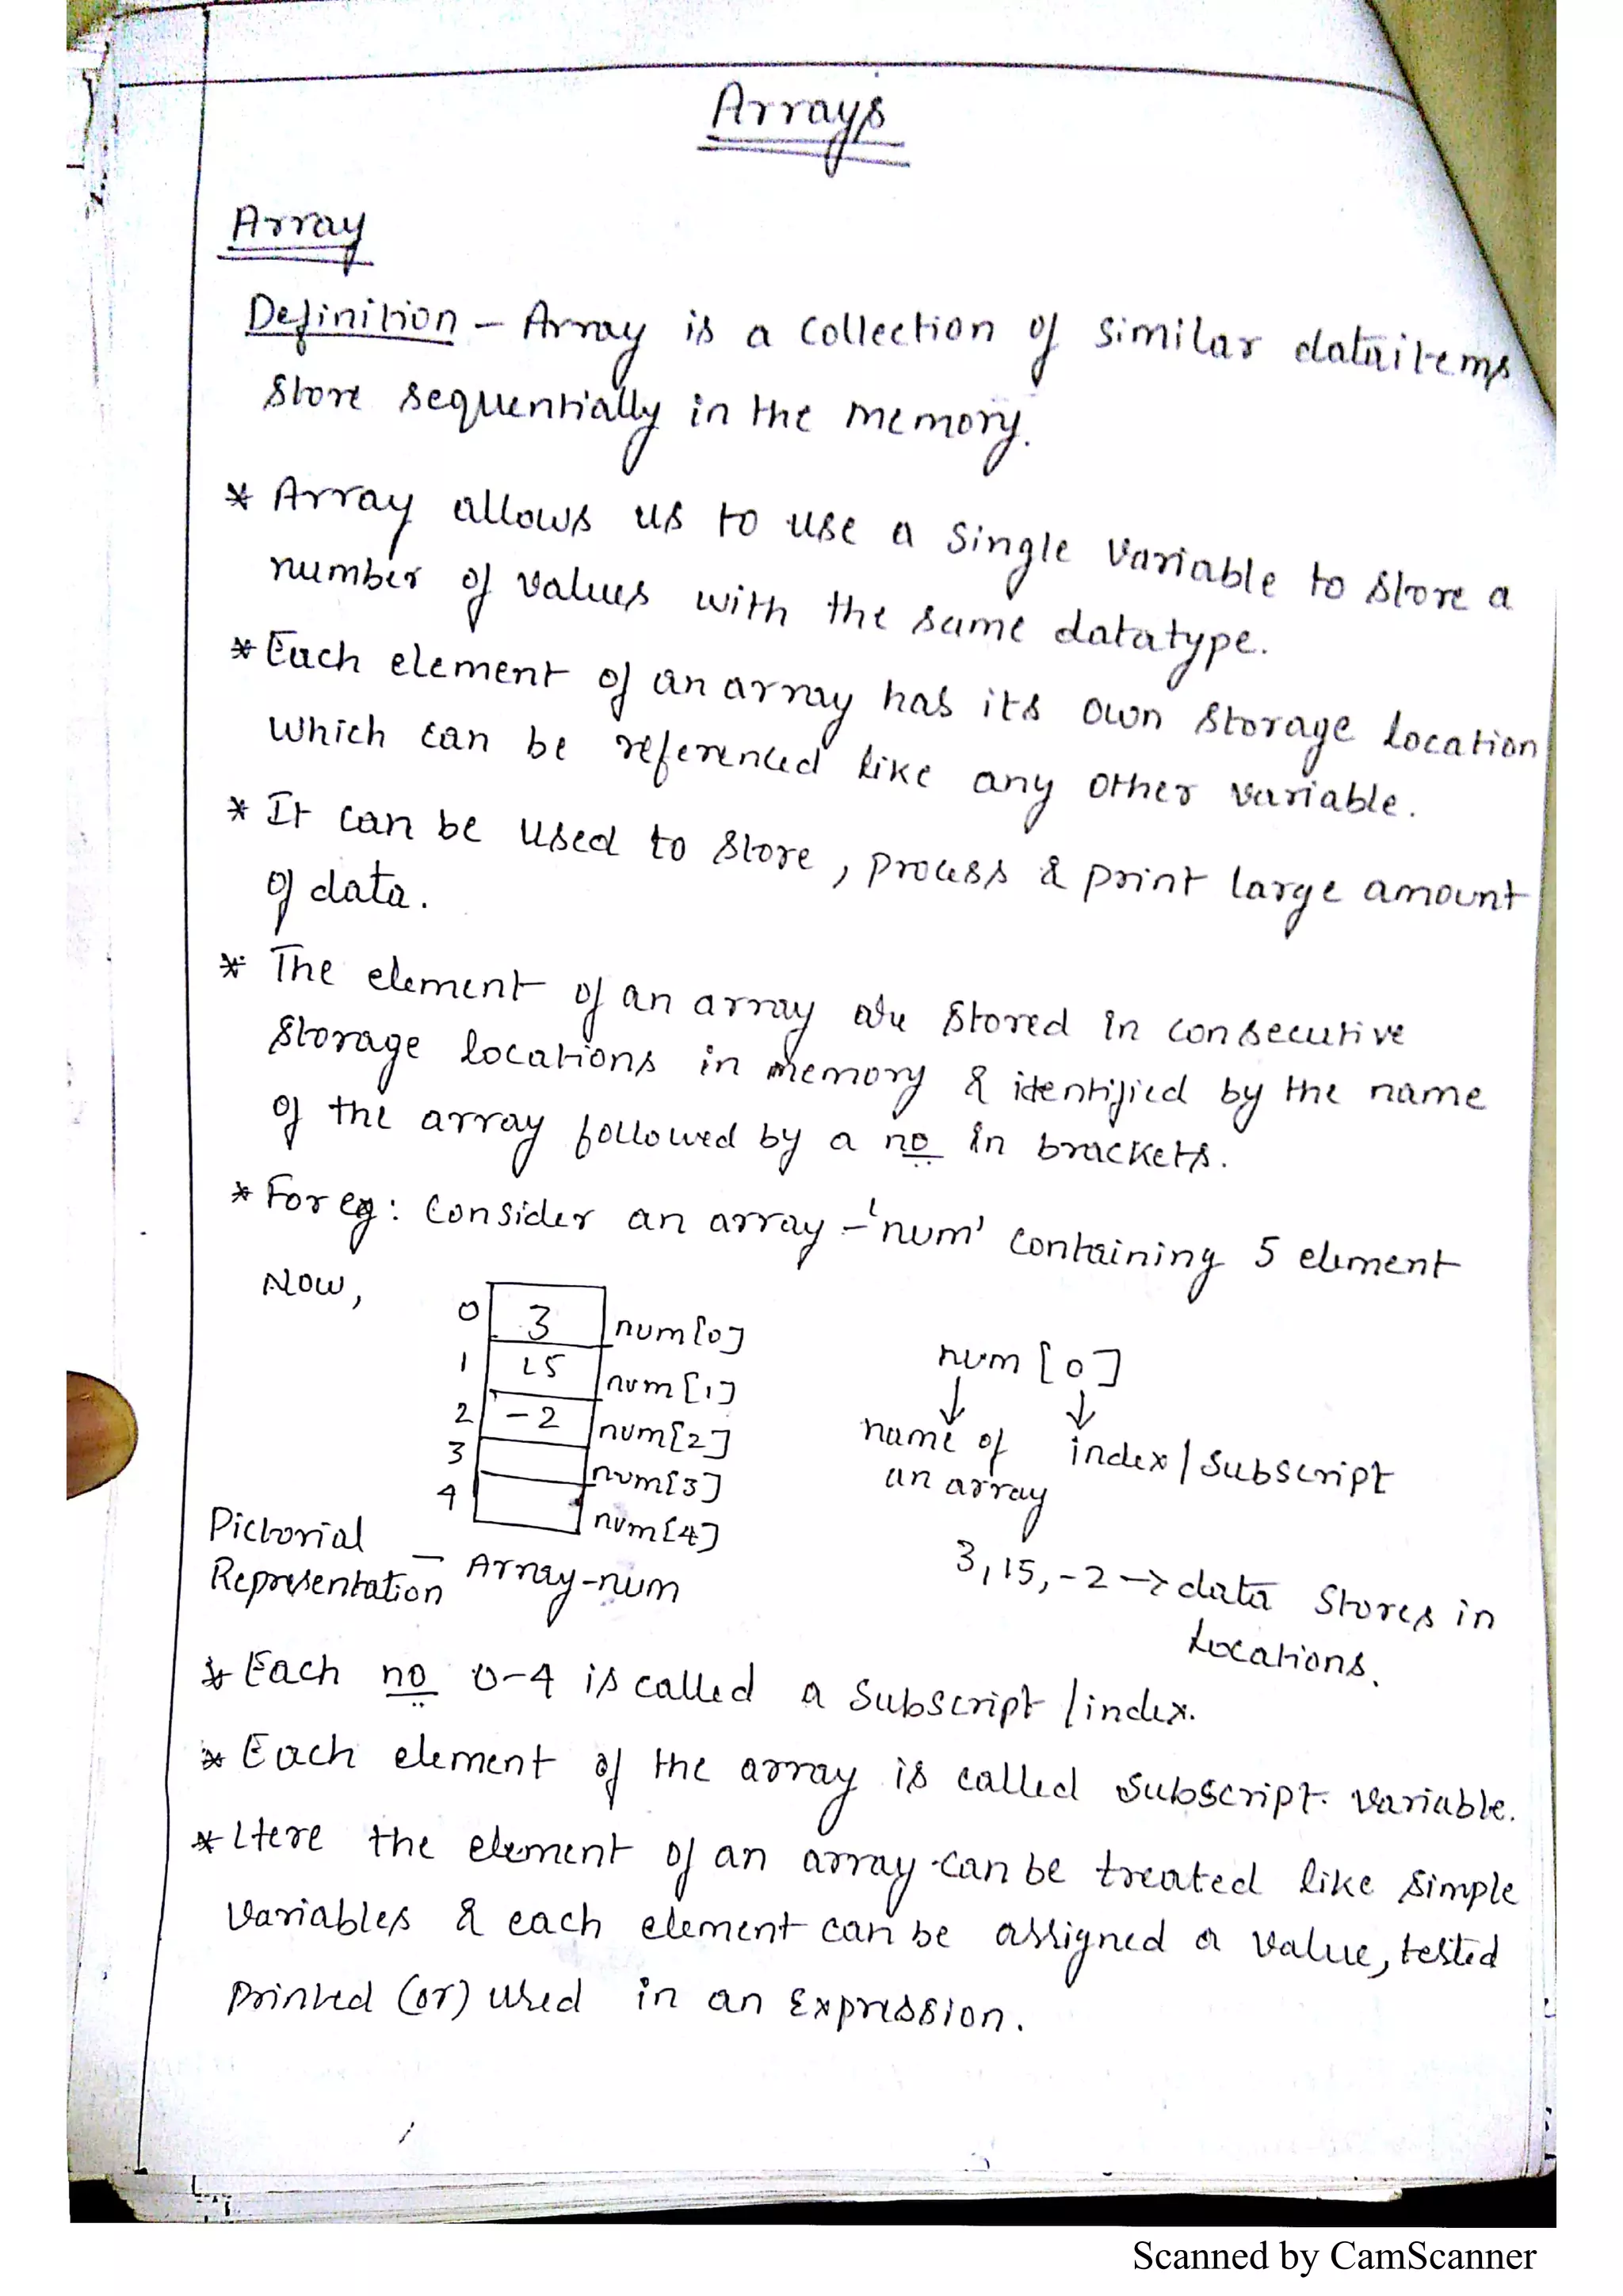 Arrays
Array
Definition - Array is a collection of similar dataitems
store sequentially in the memory.
* Array allows us to use a single variable to store a
number of values with the same datatype.
* Each element of an array has its own storage location
which can be referenced like any other variable.
* It can be used to store, process & print large amount
of data.
* The element of an array are stored in consecutive
storage locations in memory & identified by the name
of the array followed by a no in brackets.
* For eg: Consider an array - 'num' containing 5 element
Now,
0 3 num[0]
1 15 num[1]
2 -2 num[2]
3 num[3]
4 num[4]
Pictorial
Representation - Array-num
num [0]
↓ ↓
name of index/subscript
an array
3,15,-2 → data stores in
locations.
* Each no 0-4 is called a subscript/index.
* Each element of the array is called subscript variable.
* Here the element of an array can be treated like simple
variables & each element can be assigned a value, tested
printed (or) used in an expression.
Scanned by CamScanner